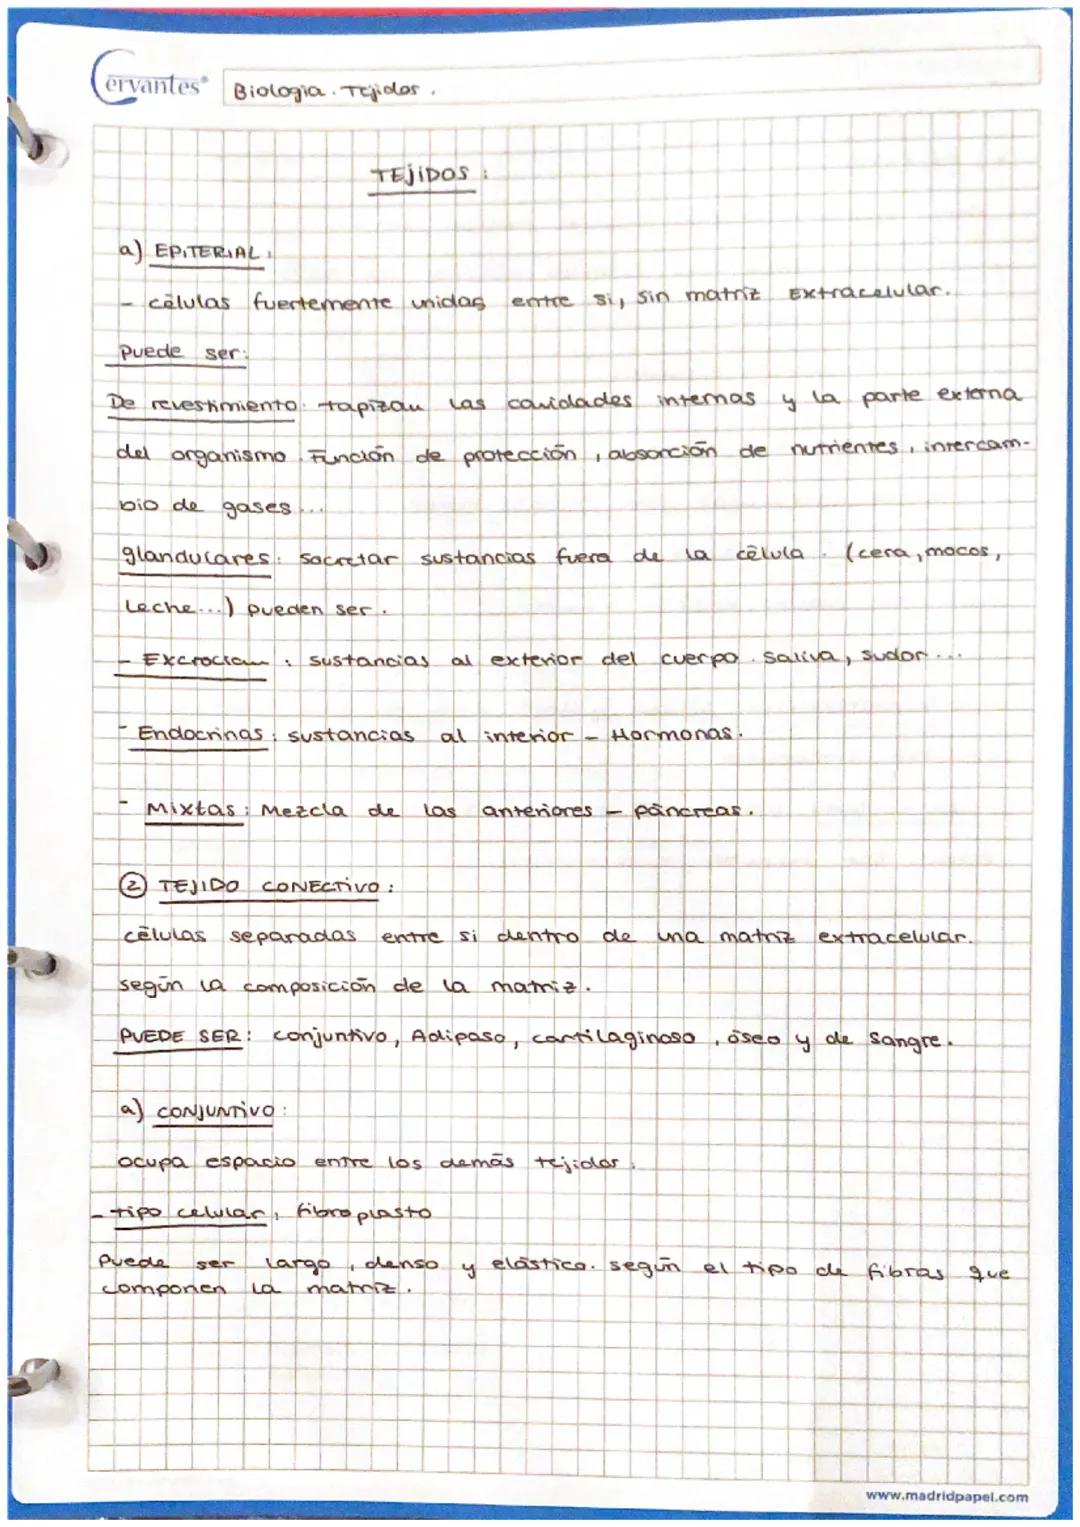 Cervantes®
Biologia. Tejidos.
TEJIDOS:
a) EPITERIAL:
- células fuertemente unidas entre si, sin matriz Extracelular.
Puede ser:
De revestimiento: tapizan las cavidades internas y la parte externa
del organismo. Función de protección, absorción de nutrientes, intercam-
bio de gases...
glandulares: sacretar sustancias fuera de la célula. (cera, mocos,
Leche...) pueden ser.
- Excrocian: sustancias al exterior del cuerpo. Saliva, sudor...
- Endocrinas: sustancias al interior - Hormonas.
- Mixtas: Mezcla de las anteriores - páncreas.
② TEJIDO CONECTIVO:
células separadas entre si dentro de una matriz extracelular.
según la composición de la matriz.
PUEDE SER: conjuntivo, Adipaso, cartilaginoso, óseo y de Sangre.
a) CONJUNTIVO:
ocupa espacio entre los demás tejidos.
- tipo celular, fibroplasto
Puede ser largo, denso y elástico. según el tipo de fibras que
componen la matriz.
www.madridpapel.com